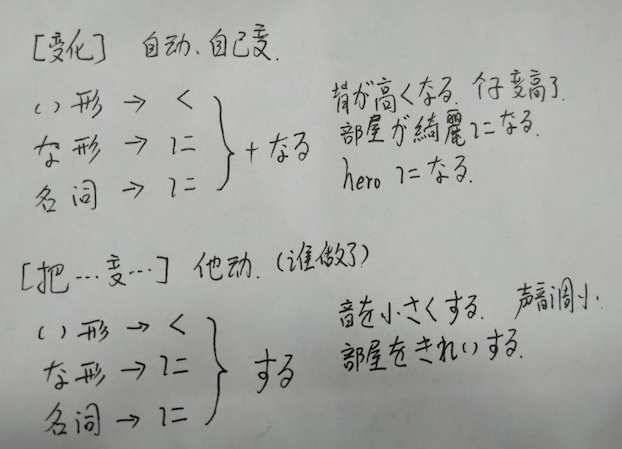 [变化] 自动、自己变.
い形 → く
な形 → に
名词 → に
} + なる
背が高くなる. 个子变高了.
部屋が綺麗になる.
hero になる.
[把…变…] 他动.(谁做了)
い形 → く
な形 → に
名词 → に
} する
音を小さくする. 声音调小.
部屋をきれいする.